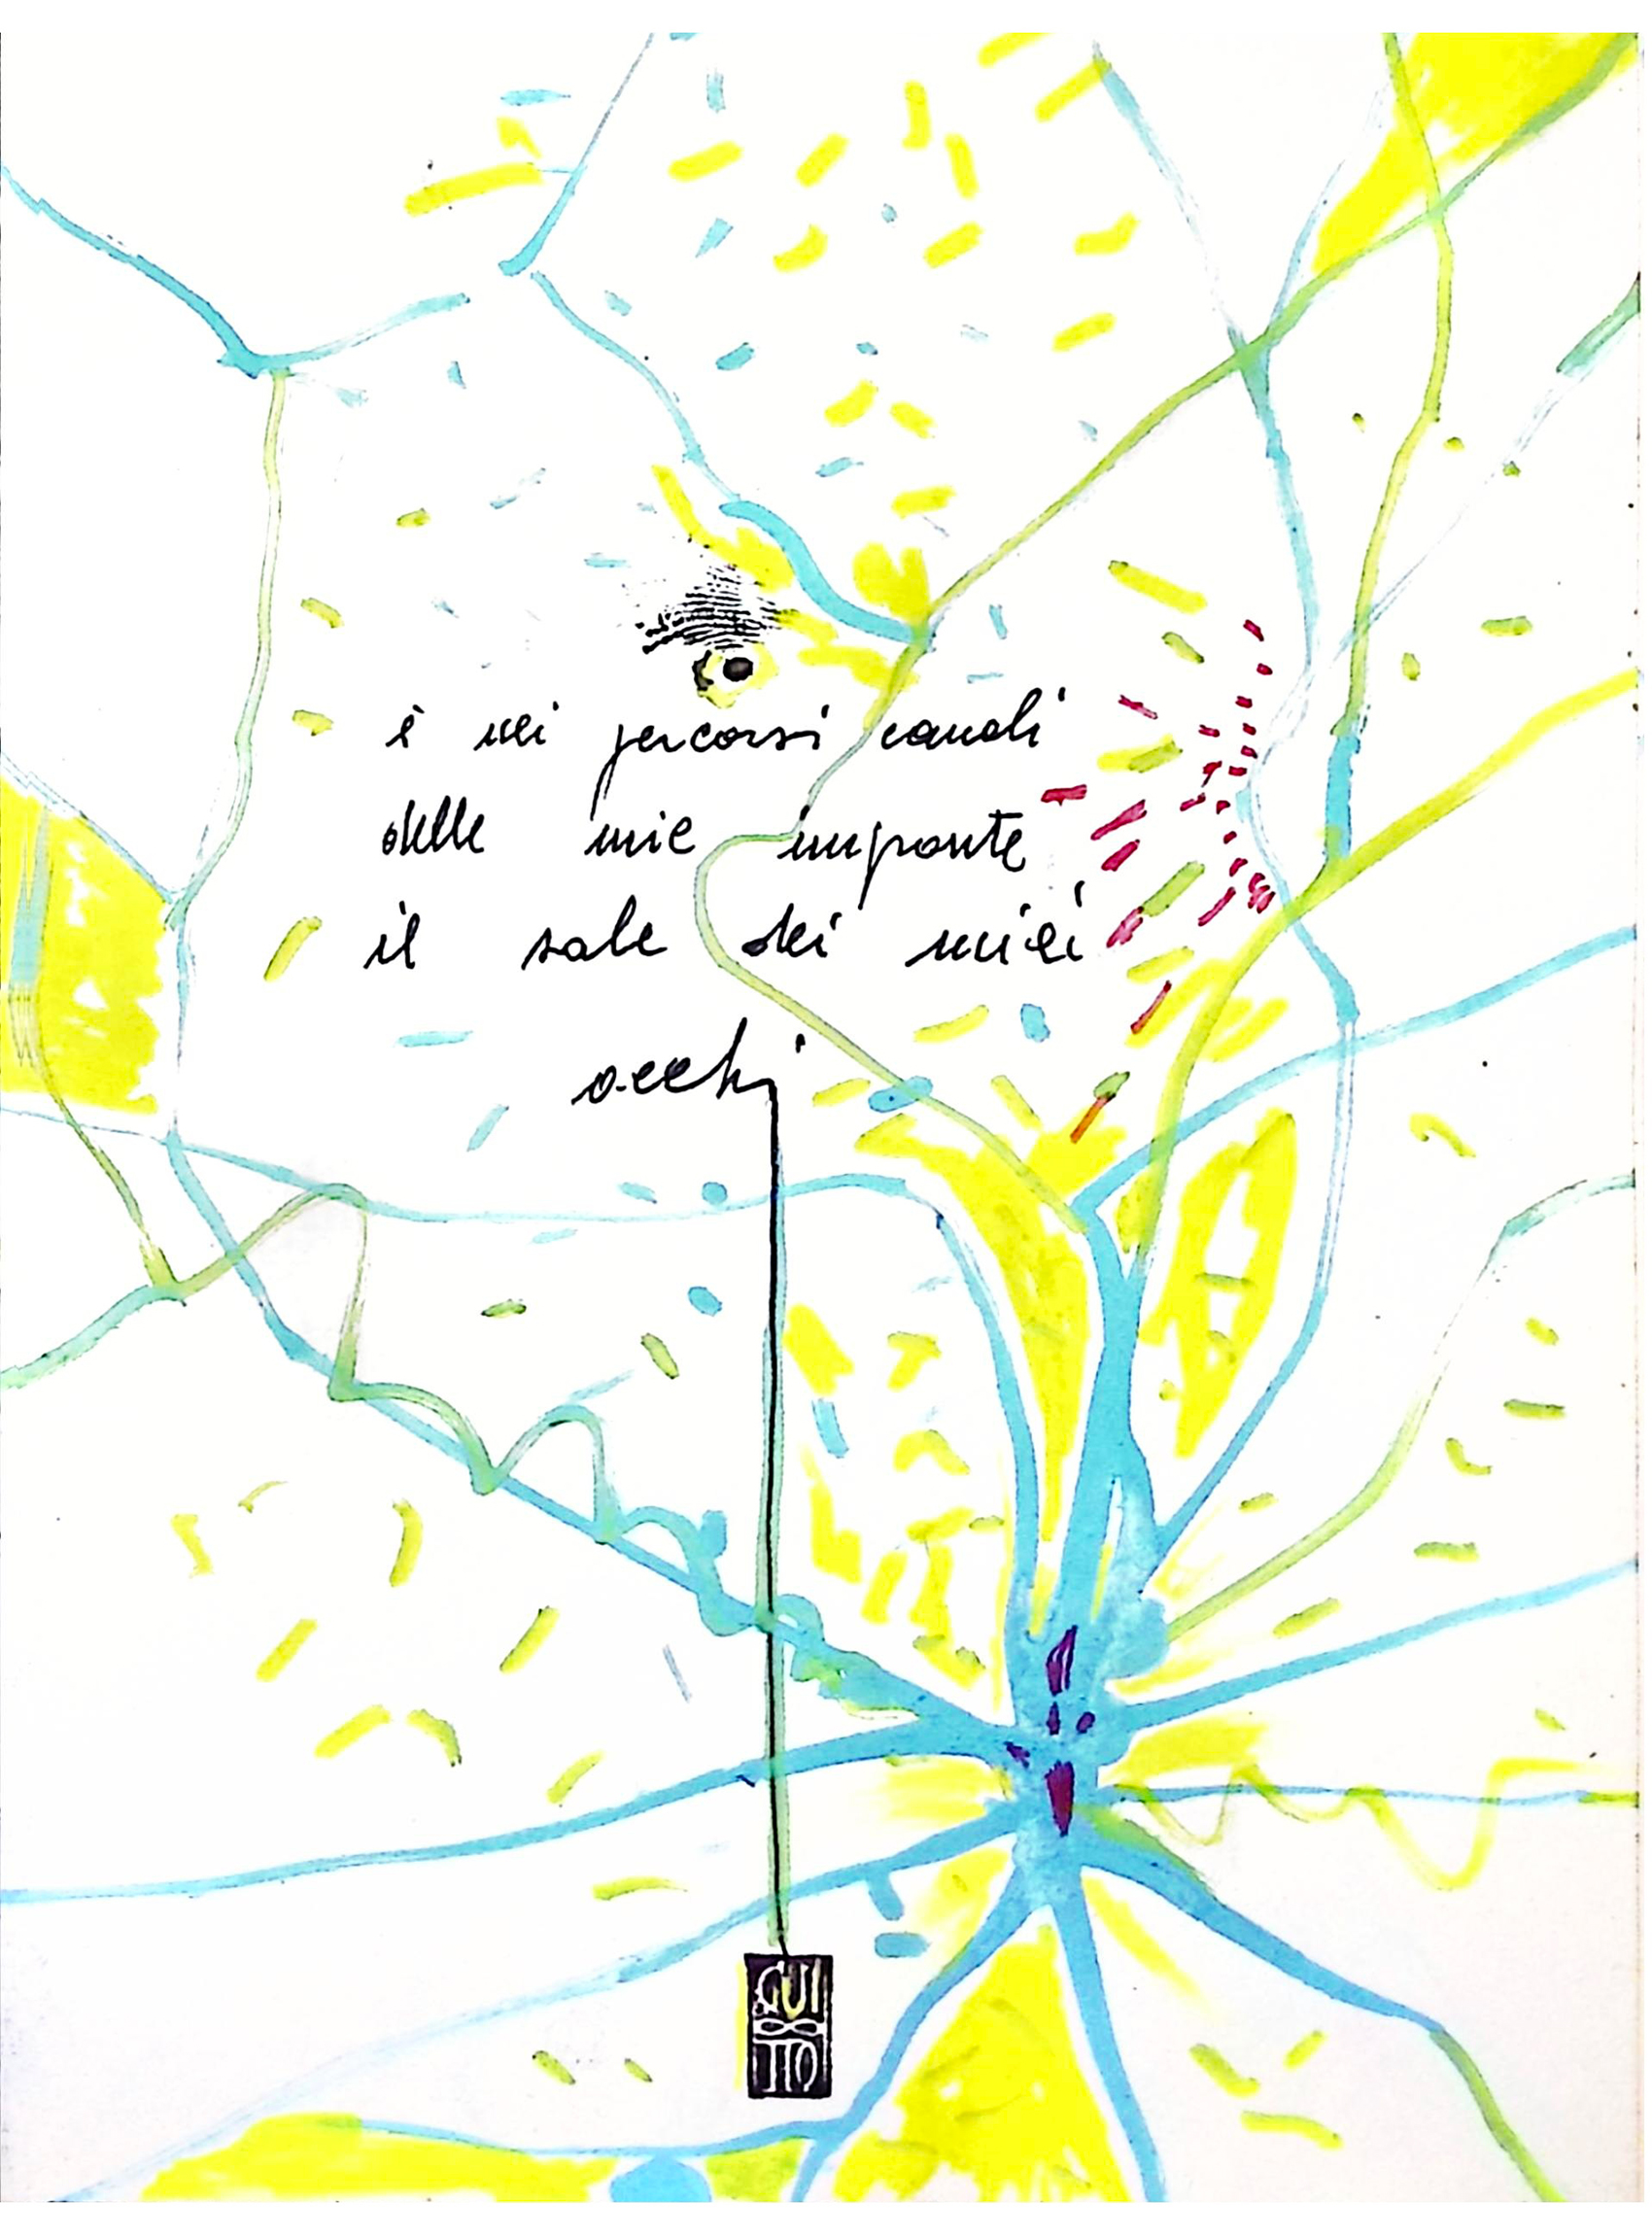 è nei percorsi canali
delle mie impronte
il sale dei miei
occhi
GUI
TO